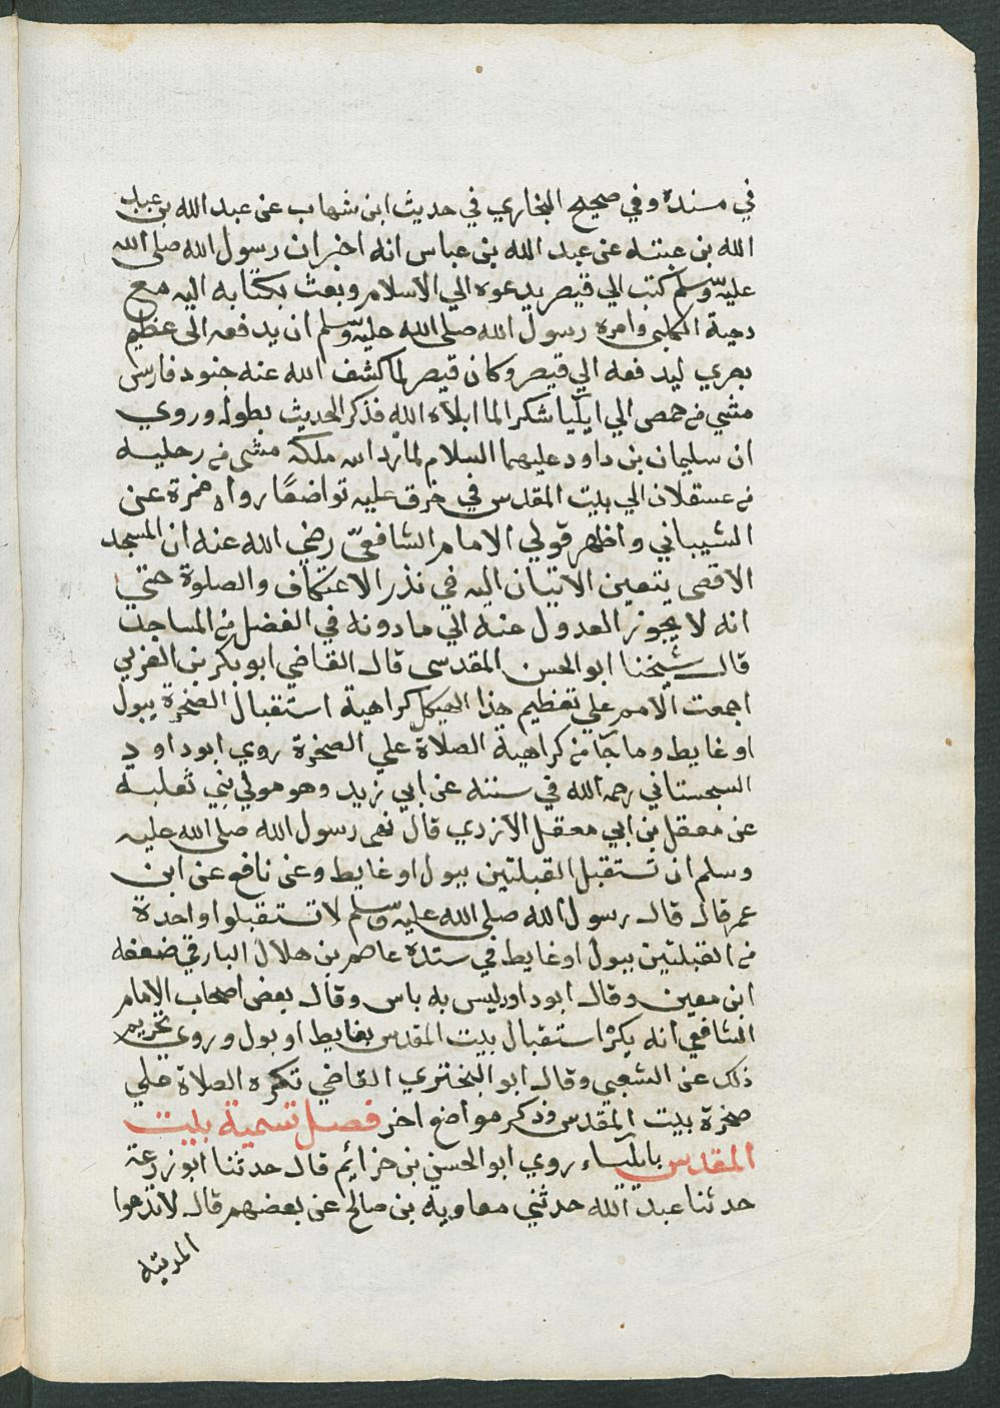 في مسنده وفي صحيح البخاري في حديث ابن شهاب عن عبد الله بن عبد
الله بن عبتة عن عبد الله بن عباس انه اخبر ان رسول الله صلى الله
عليه وسلم كتب الي قيصر يدعوه الي الاسلام وبعث بكتابه اليه مع
دحية الكلبي وامره رسول الله صلى الله عليه وسلم ان يدفعه الى عظيم
بصري ليدفعه الي قيصر وكان قيصر لما كشف الله عنه جنود فارس
مشي من حمص الي ايليا شكرا لما ابلاه الله فذكر الحديث بطوله وروي
ان سليمان بن داود عليهما السلام لما رد الله ملكه مشى من رحليه
من عسقلان الي بيت المقدس في خرق عليه تواضعا رواه ضمرة عن
الشيباني واظهر قولي الامام الشافعي رضي الله عنه ان المسجد
الاقصى يتعين الاتيان اليه في نذر الاعتكاف والصلوة حتي
انه لا يجوز العدول عنه الي ما دونه في الفضل من المساجد
قال شيخنا ابو الحسن المقدسي قال القاضي ابو بكر بن العربي
اجمعت الامم علي تعظيم هذا الهيكل كراهية استقبال الصخرة ببول
او غايط وما جآ من كراهية الصلاة علي الصخرة روي ابو داود
السجستاني رحمه الله في سننه عن ابي زيد وهو مولي بني ثعلبة
عن معقل بن ابي معقل الازدي قال نهى رسول الله صلى الله عليه
وسلم ان تستقبل القبلتين ببول او غايط وعن نافع عن ابن
عمر قال قال رسول الله صلى الله عليه وسلم لا تستقبلوا واحدة
من القبلتين ببول او غايط في سنده عاصم بن هلال البارقي ضعفه
ابن معين وقال ابو داود ليس به باس وقال بعض اصحاب الامام
الشافعي انه يكره استقبال بيت المقدس بغايط او بول وروي تحريم
ذلك عن الشعبي وقال ابو البختري القاضي تكره الصلاة علي
صخرة بيت المقدس وذكر مواضع اخر فصل تسمية بيت
المقدس بايلياء روي ابو الحسن بن خزائم قال حدثنا ابو زرعة
حدثنا عبد الله حدثني معاوية بن صالح عن بعضهم قال لا تدعوا
المدينه